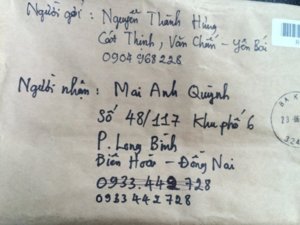 Người gởi : Nguyễn Thành Hưng
Cát Thịnh, Văn Chấn - Yên Bái
0904968228
Người nhận : Mai Anh Quỳnh
Số 48/117 Khu phố 6
P. Long Bình
Biên Hoà - Đồng Nai
0933.442 728
0933 442 728
BA K
23
324